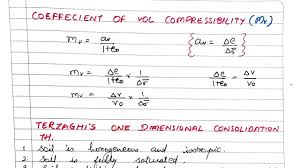 COEFFECIENT OF VOL COMPRESSIBILITY (mv)
mv = av / 1+e0 { av = Δe / Δσ̄ }
mv = Δe / 1+e0 × 1 / Δσ̄ Δe / 1+e0 = Δv / v0
mv = Δv / v0 × 1 / Δσ̄
TERZAGHI'S ONE DIMENSIONAL CONSOLIDATION
TH.
1. soil is homogenous and isotropic.
2. soil is fully saturated.